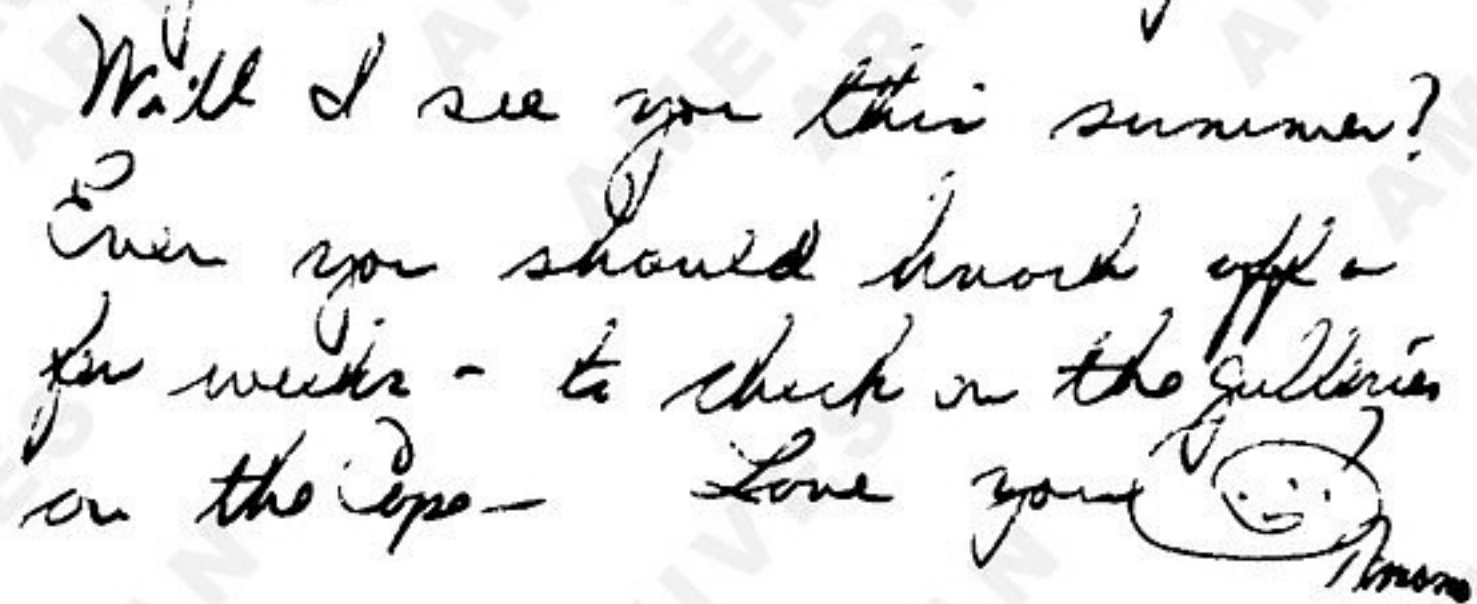 Will I see you this summer?
Even you should knock off a
few weeks - to check on the galleries
on the Cape - Love you